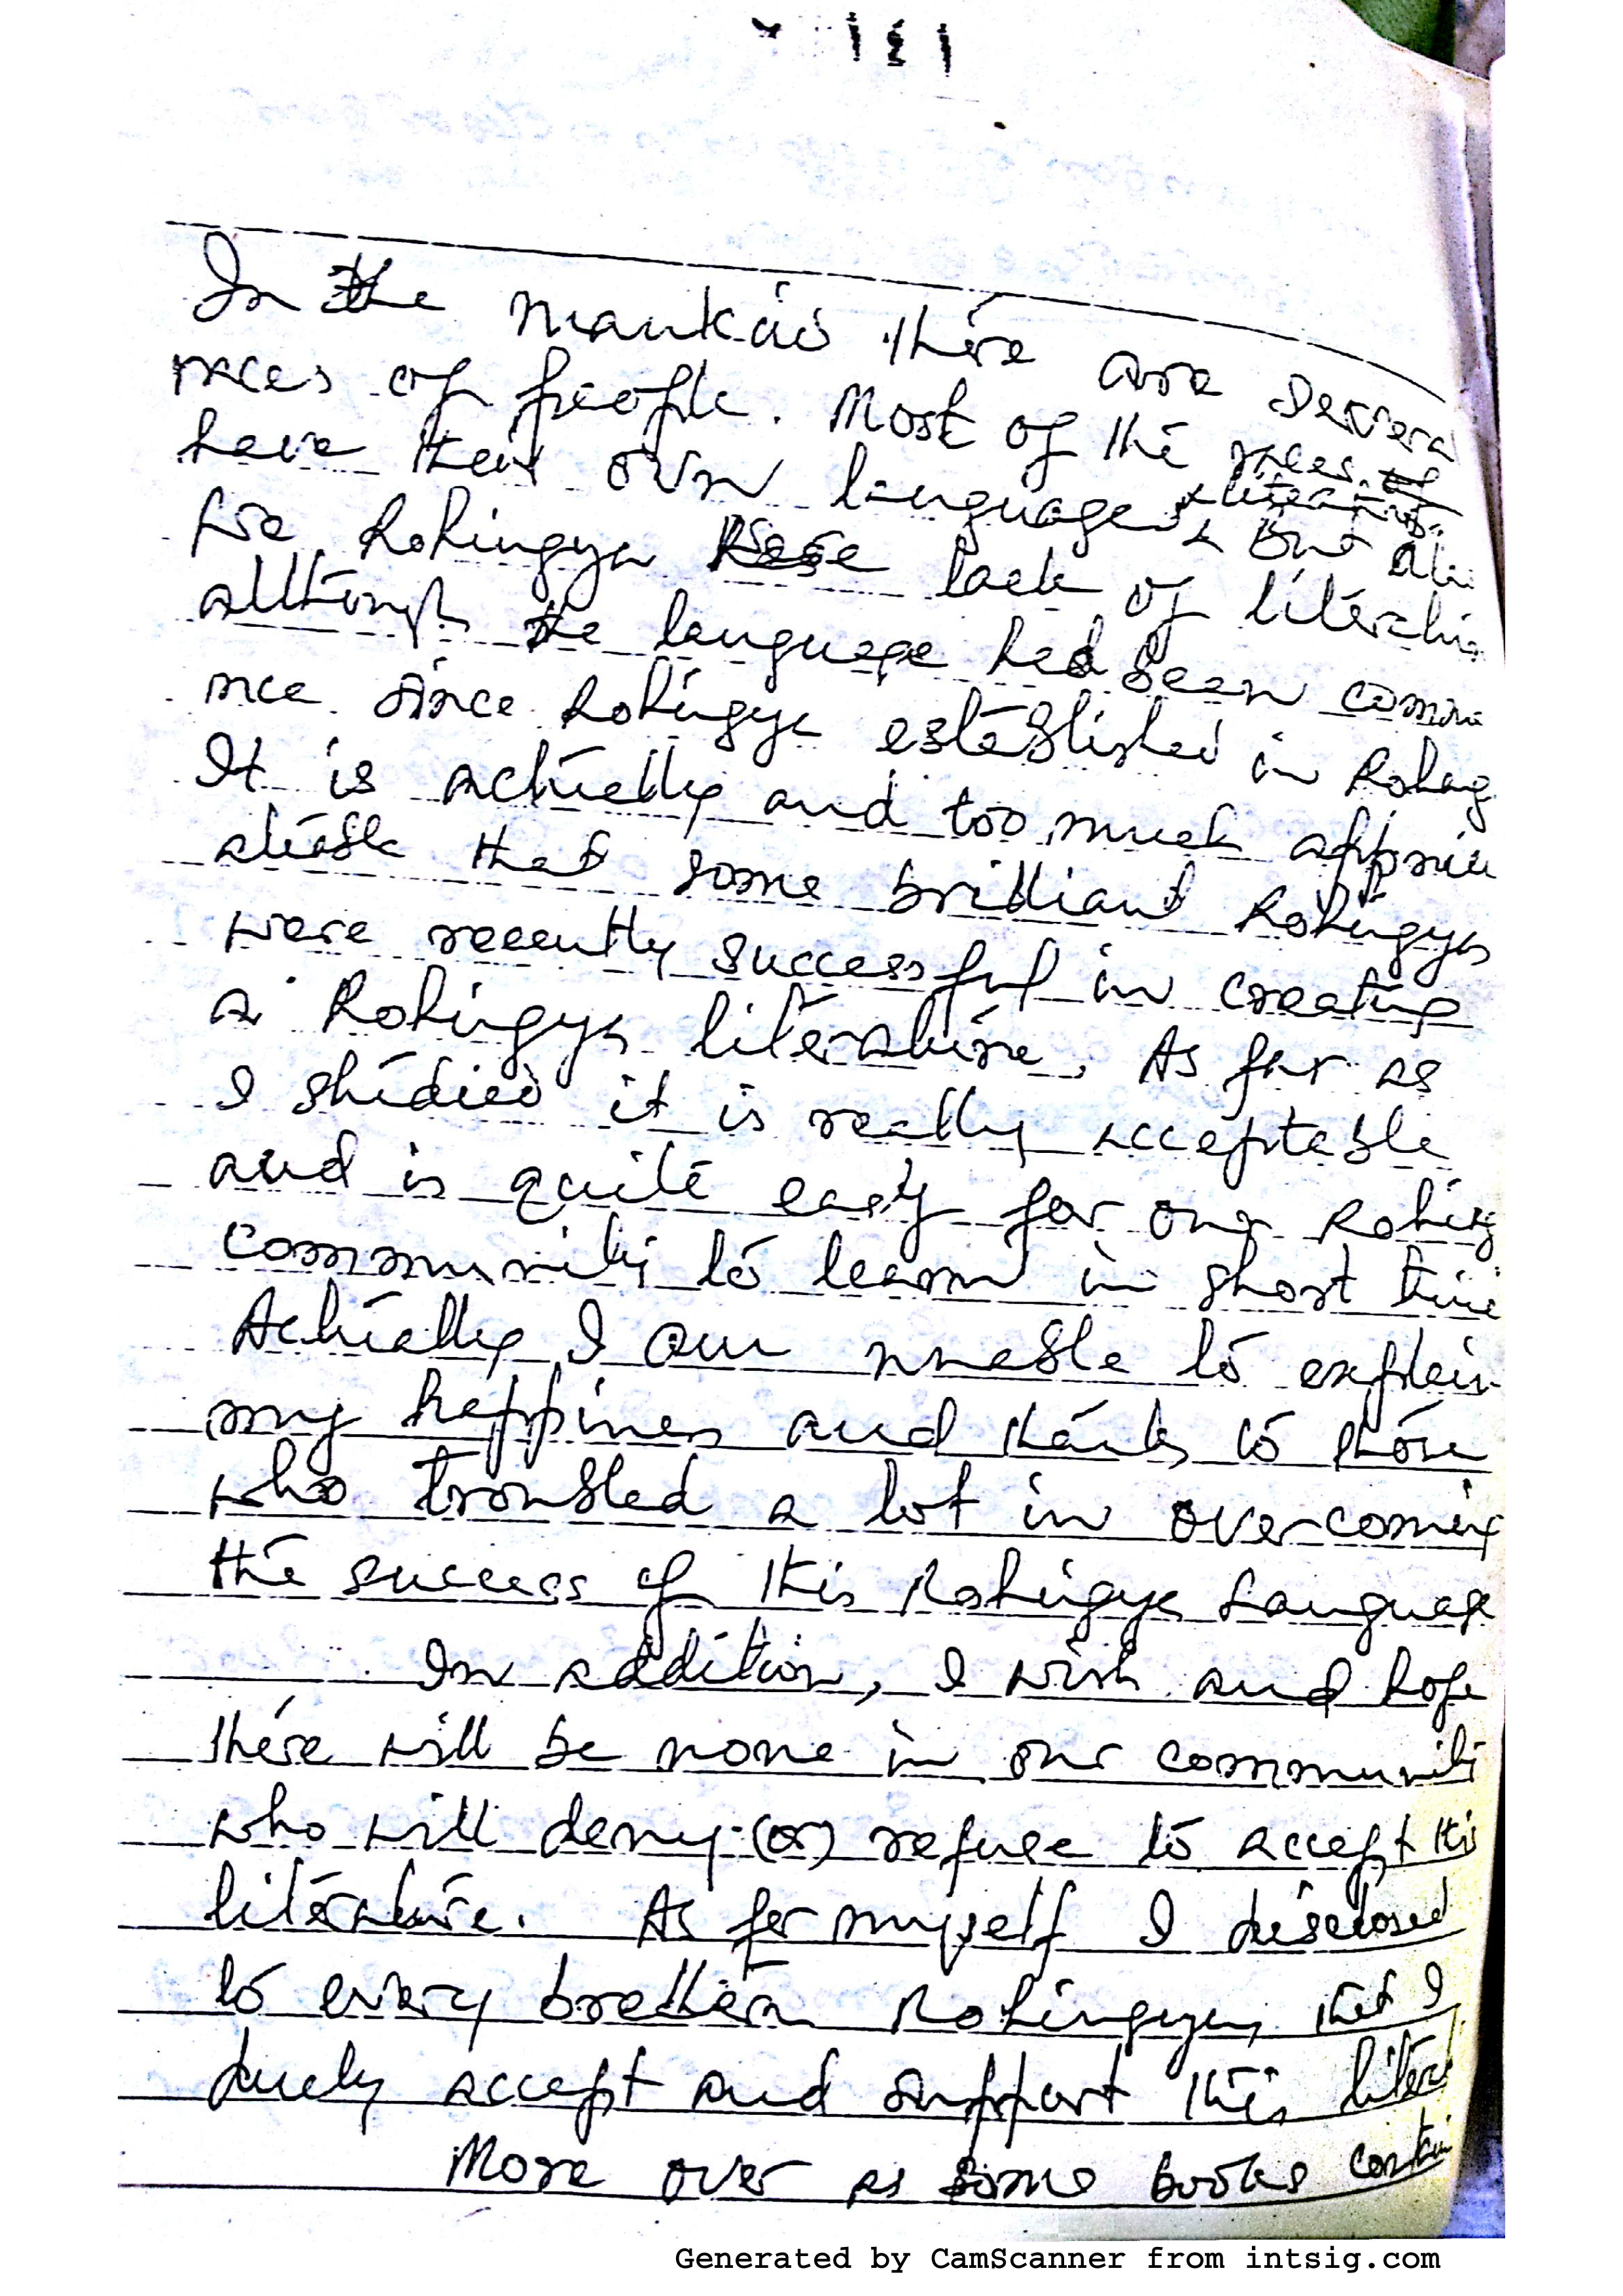 In the mankid there are severa
races of people. Most of the races of
have their own languages & literature.
& But alu
we Rohingya were lack of literatu
although the language had been comme
nce since Rohingya established in Rohang
It is actually and too much apprici
atiable that some brilliant Rohingyas
were recently successful in creating
a Rohingya literature. As far as
I studied it is really acceptable
and is quite easy for our Rohing
community to learn in short time
Actually I am unable to explain
my happines and thanks to those
who troubled a lot in overcoming
the success of this Rohingya Language
In addition, I wish and hope
there will be none in our community
who will deny (or) refuse to accept this
literature. As for myself I disclosed
to every brethen Rohingya, that I
duely accept and support this litera
More over as some books contai
Generated by CamScanner from intsig.com